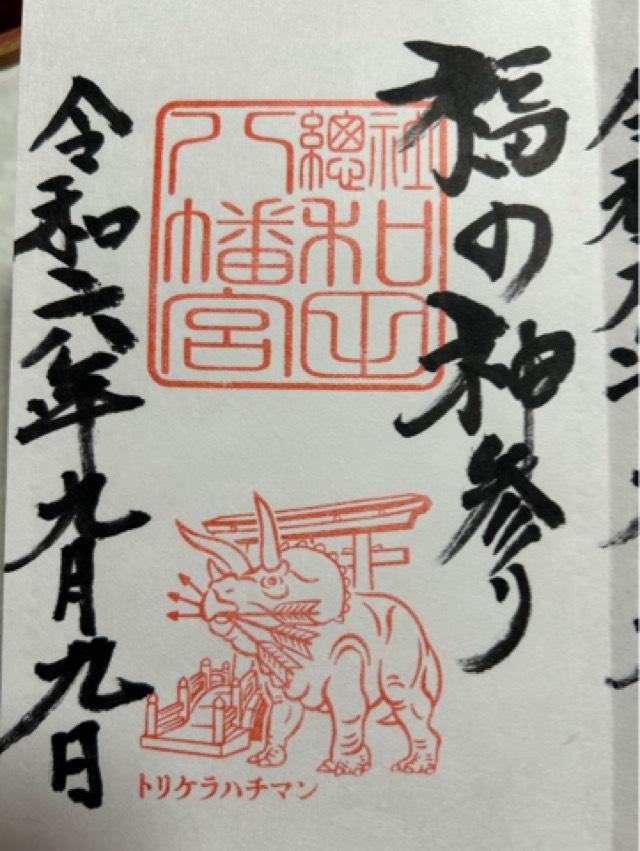 福の神参り
社和田
總和田
八幡宮
トリケラハチマン
令和六年九月九日